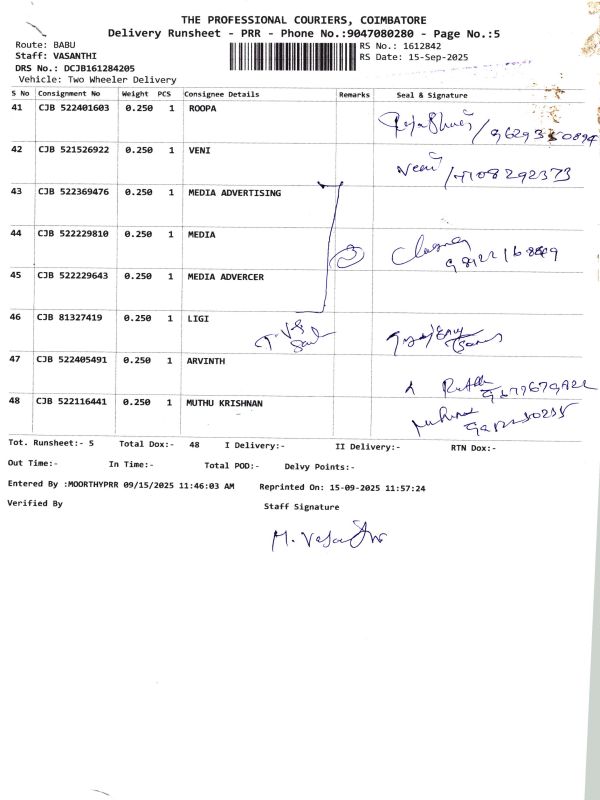 THE PROFESSIONAL COURIERS, COIMBATORE
Delivery Runsheet - PRR - Phone No.:9047080280 - Page No.:5
Route: BABU RS No.: 1612842
Staff: VASANTHI RS Date: 15-Sep-2025
DRS No.: DCJB161284205
Vehicle: Two Wheeler Delivery
S No Consignment No Weight PCS Consignee Details Remarks Seal & Signature
41 CJB 522401603 0.250 1 ROOPA
42 CJB 521526922 0.250 1 VENI
Veni
43 CJB 522369476 0.250 1 MEDIA ADVERTISING
44 CJB 522229810 0.250 1 MEDIA
3
45 CJB 522229643 0.250 1 MEDIA ADVERCER
46 CJB 81327419 0.250 1 LIGI
47 CJB 522405491 0.250 1 ARVINTH
48 CJB 522116441 0.250 1 MUTHU KRISHNAN
Tot. Runsheet:- 5 Total Dox:- 48 I Delivery:- II Delivery:- RTN Dox:-
Out Time:- In Time:- Total POD:- Delvy Points:-
Entered By :MOORTHYPRR 09/15/2025 11:46:03 AM Reprinted On: 15-09-2025 11:57:24
Verified By Staff Signature